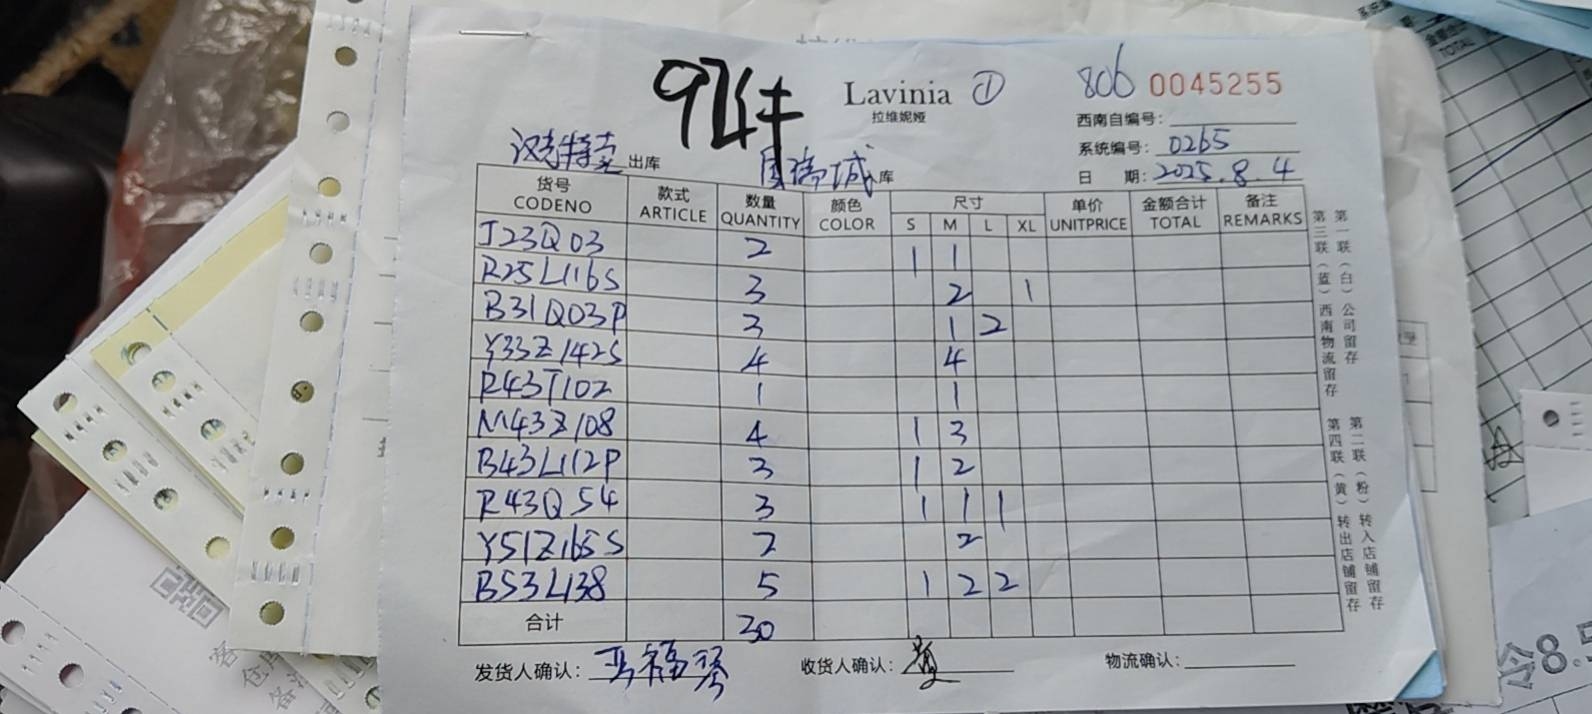 97件
Lavinia ①
拉维妮娅
806 0045255
西南自编号:
系统编号: 0265
日 期: 2025.8.4
汉特莱出库
国瑞城入库
货号 CODENO 款式 ARTICLE 数量 QUANTITY 颜色 COLOR 尺寸 S M L XL 单价 UNITPRICE 金额合计 TOTAL 备注 REMARKS
J23Q03 2 1 1
R25L116S 3 2 1
B31Q03P 3 1 2
Y33Z142S 4 4
R43T102 1 1
M43Z108 4 1 3
B43L112P 3 1 2
R43Q54 3 1 1 1
Y51Z165S 2 2
B53L138 5 1 2 2
合计 30
发货人确认: 马福琴 收货人确认: 物流确认:
第一联(白)公司留存
第三联(蓝)西南物流留存
第二联(粉)转入店铺留存
第四联(黄)转出店铺留存
TOTAL